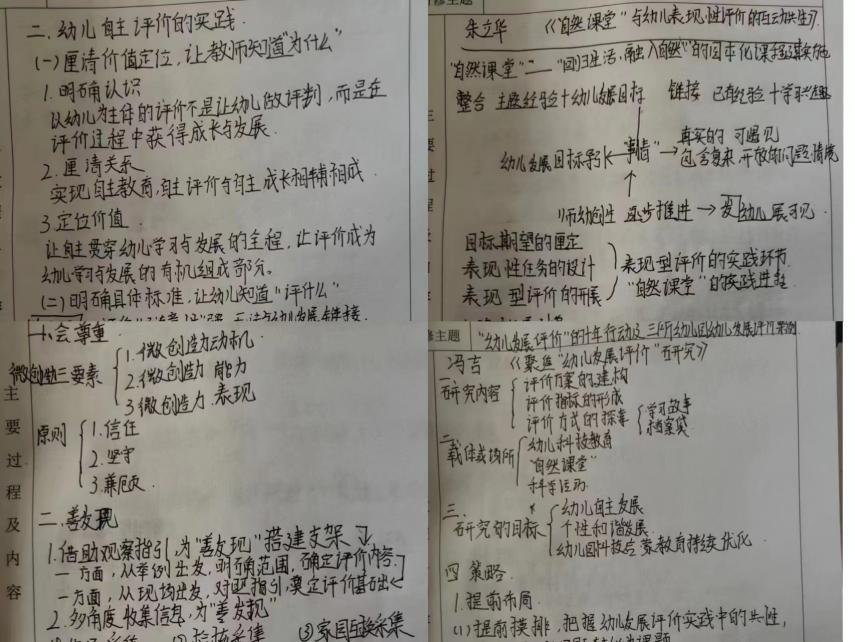 二、幼儿自主评价的实践
(一)厘清价值定位,让教师知道"为什么"
1.明确认识
以幼儿为主体的评价不是让幼儿做评判,而是在
评价过程中获得成长与发展.
2.厘清关系
实现自主教育,自主评价与自主成长相辅相成.
3.定位价值
让自主贯穿幼儿学习与发展的全程,让评价成为
幼儿学习与发展的有机组成部分。
(二)明确具体标准,让幼儿知道"评什么"
修主题
朱立华 《"自然课堂"与幼儿表现性评价的互动共生》
"自然课堂"——"回归生活,融入自然"的园本化课程建构实施
整合 主题经验+幼儿发展目标 链接 已有经验+学习兴趣
幼儿发展目标导向←"事情"→真实的 可遇见
包含复杂、开放的问题情境
师幼创生 逐步推进→幼儿发展可见.
目标期望的厘定
表现性任务的设计
表现型评价的开展
表现型评价的实践环节
"自然课堂"的实践进程
一、会尊重
微创造三要素
1.微创造力动机
2.微创造力 能力
3.微创造力 表现
原则
1.信任
2.坚守
3.兼顾
主要过程及内容
二.善发现
1.借助观察指引,为"善发现"搭建支架
一方面,从案例出发,明确范围,确定评价内容.
一方面,从现场出发,对照指引,奠定评价基础
2.多角度收集信息,为"善发现"
③家园互换采集
修主题
"幼儿发展评价"的十年行动
冯吉 《聚焦"幼儿发展评价"研究》
一研究内容
评价方案的建构
评价指标的形成
评价方式的探索
学习故事
档案袋
二载体或场所
幼儿科技教育
"自然课堂"
科学活动
三.研究的目标
幼儿自主发展
个性和谐发展
幼儿园科技启蒙教育持续优化
四 策略.
1.提前布局.
(1)提前摸排:把握幼儿发展评价实践中的共性,